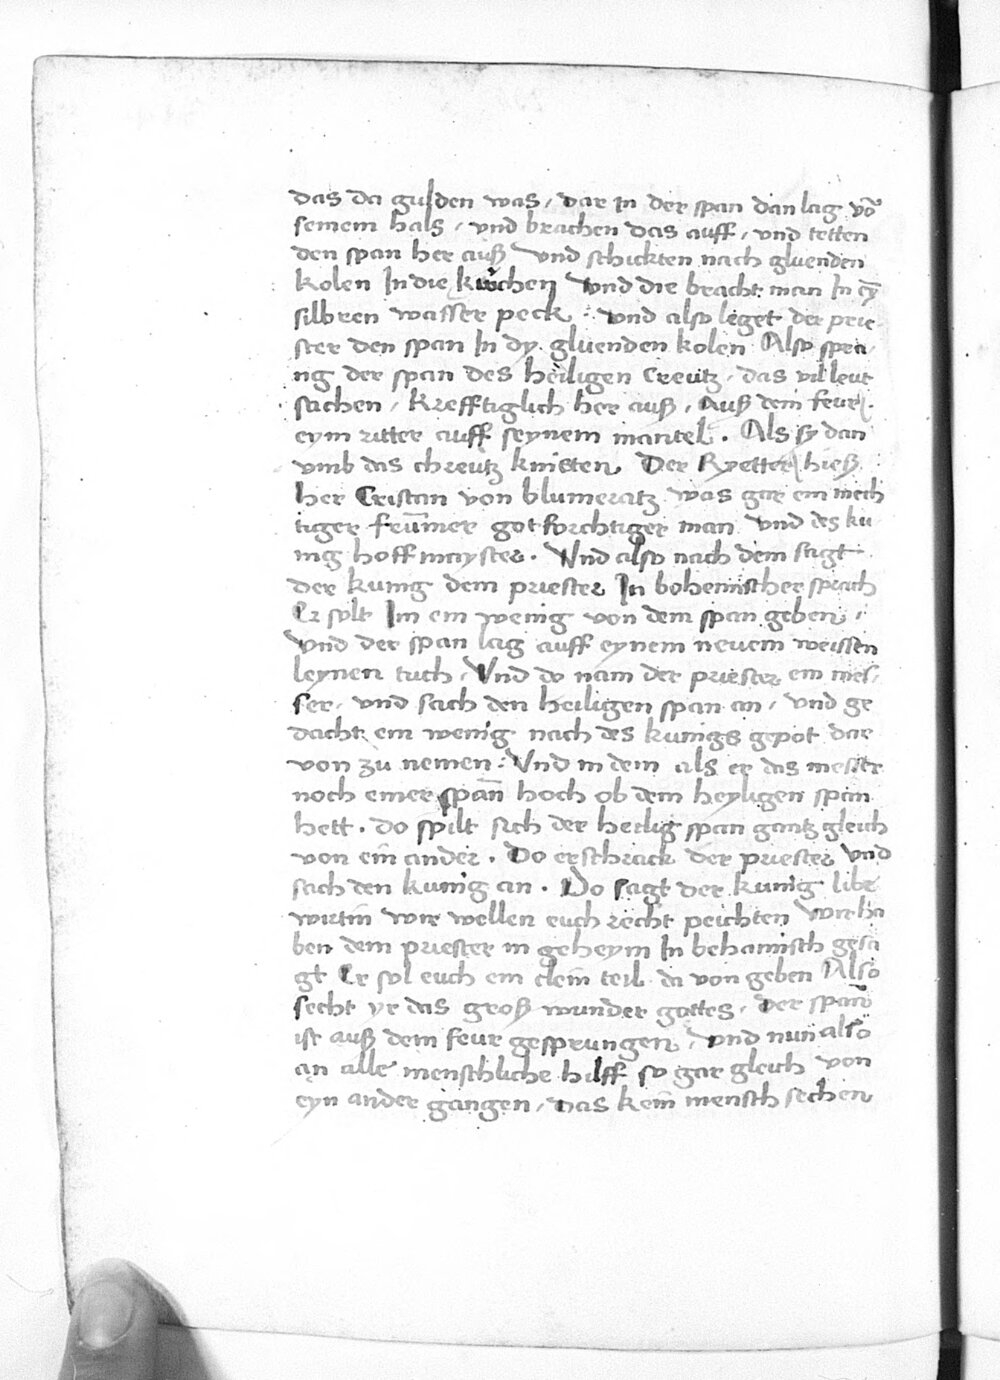 das da gulden was / dar In der span dan lag võ
seinem hals / und brachen das auff / und tetten
den span her auß Und schickten nach gluenden
kolen In die kirchen Und die bracht man In ey̅
silbren wasser peck : und also leget der prie-
ster den span In dy gluenden kolen Also spra-
ng der span des heiligen Creutz / das vil leut
sachen / krefftiglich her auß / Auß dem feur /
eym ritter auff seynem mantel . Als sy dan
umb das chreutz knieten Der Ryetter hieß
her Cristan von blumeratz was gar ein mech
tiger frum̅er got forchtiger man Und des ku
nig hoff mayster . Und also nach dem sagt
der kunig dem priester In bohemischer sprach
Er solt Im ein wenig von dem span geben /
Und der span lag auff eynem neuem weissen
leynen tuch / Und do nam der priester ein mes/
ser / und sach den heiligen span an / und ge
dacht ein wenig nach des kunigs gepot dar
von zu nemen : Und in dem als er das messer
noch einer span̅ hoch ob dem heyligen span
hett . do spilt sich der heilig span gantz gleich
von ein ander . Do erschrack der priester Und
sach den kunig an . Do sagt der kunig libe
wirtin wir wellen euch recht peichten Wir ha
ben dem priester in geheym In behamisch gesa
gt Er sol euch ein clein teil da von geben Also
secht yr das groß wunder gottes / der span̅
ist auß dem feur gesprungen / Und nun also
an alle menschliche hilff so gar gleich von
eyn ander gangen / das kein mensch sechen